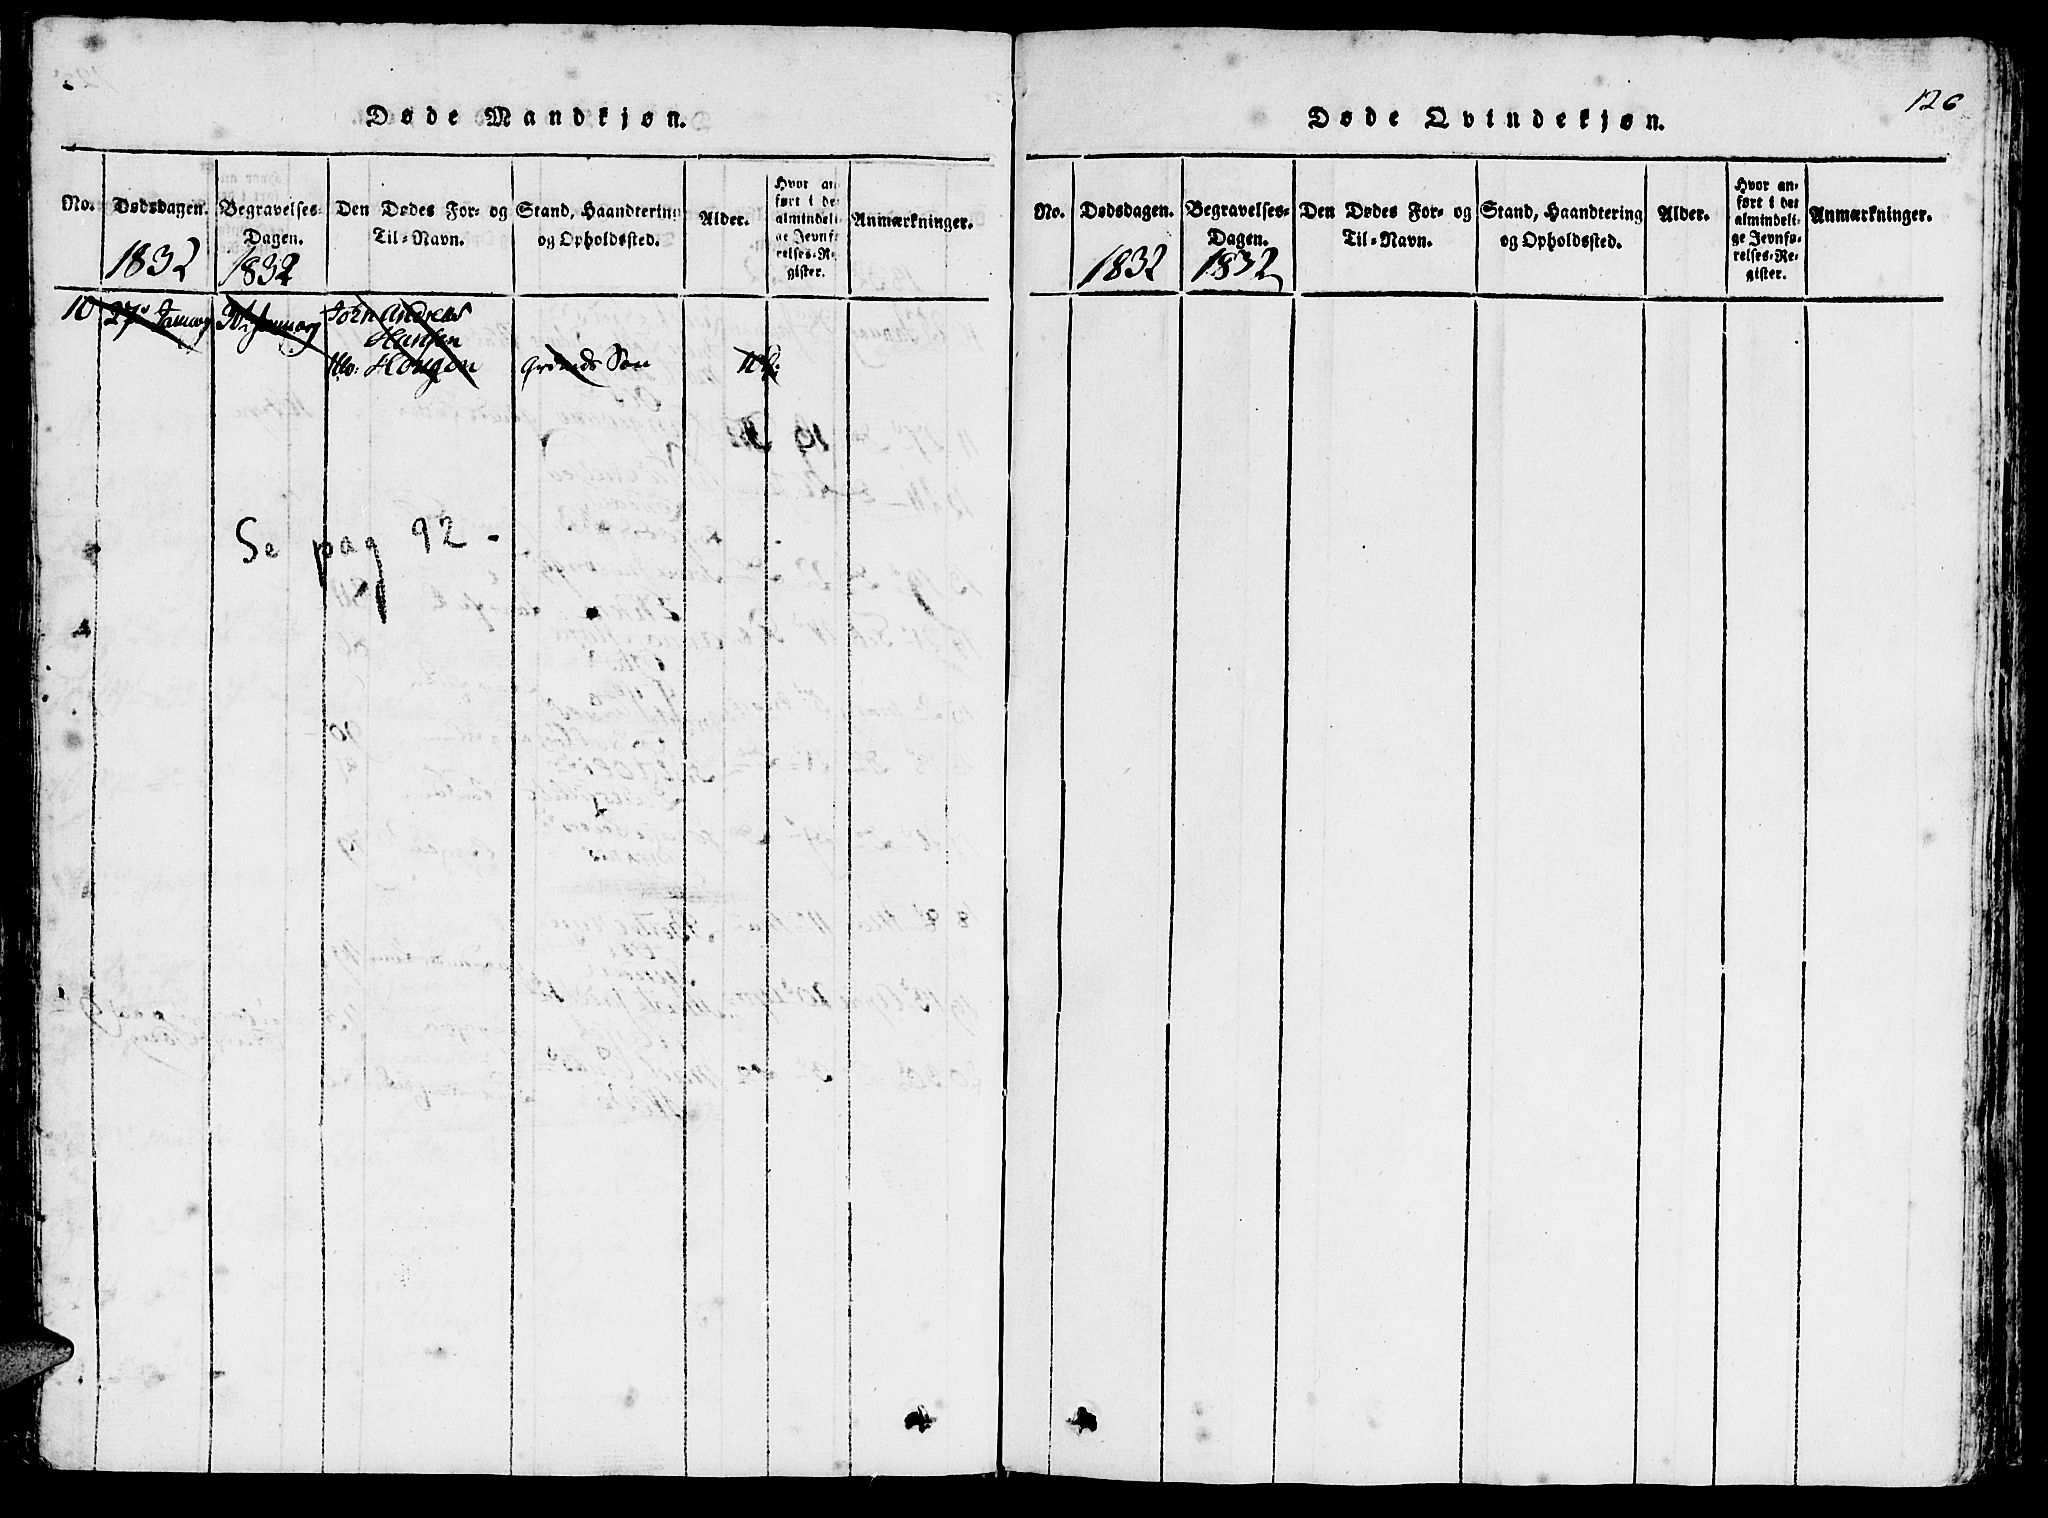 126
Døde Mandkjøn.
No.
Dødsdagen.
1832
Begravelses-
Dagen.
1832
Den Dødes For- og
Til-Navn.
Stand, Haandtering
og Opholdssted.
Alder.
Hvor an-
ført i det
almindeli-
ge Jevnfø-
relses-Re-
gister.
Anmærkninger.
10
27de Januar
Januar
Andreas
Hansen
Hougen
Søn
Se pag 92 -
Døde Qvindekjøn.
No.
Dødsdagen.
1832
Begravelses-
Dagen.
1832
Den Dødes For- og
Til-Navn.
Stand, Haandtering
og Opholdssted.
Alder.
Hvor an-
ført i det
almindeli-
ge Jevnfø-
relses-Re-
gister.
Anmærkninger.